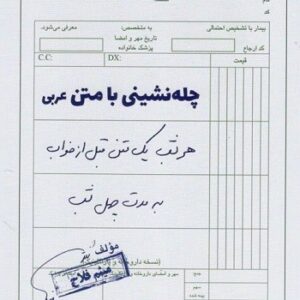 بیمار با تشخیص احتمالی
به متخصص:
معرفی می‌شود.
کد
کد ارجاع
تاریخ مهر و امضا
پزشک خانواده
C.C:
DX:
قیمت
چله‌نشینی با متن عربی
هر شب یک متن قبل از خواب
به مدت چهل شب
مؤلف
میثم فلاح
(نسخه داروخانه
جمع
سهم